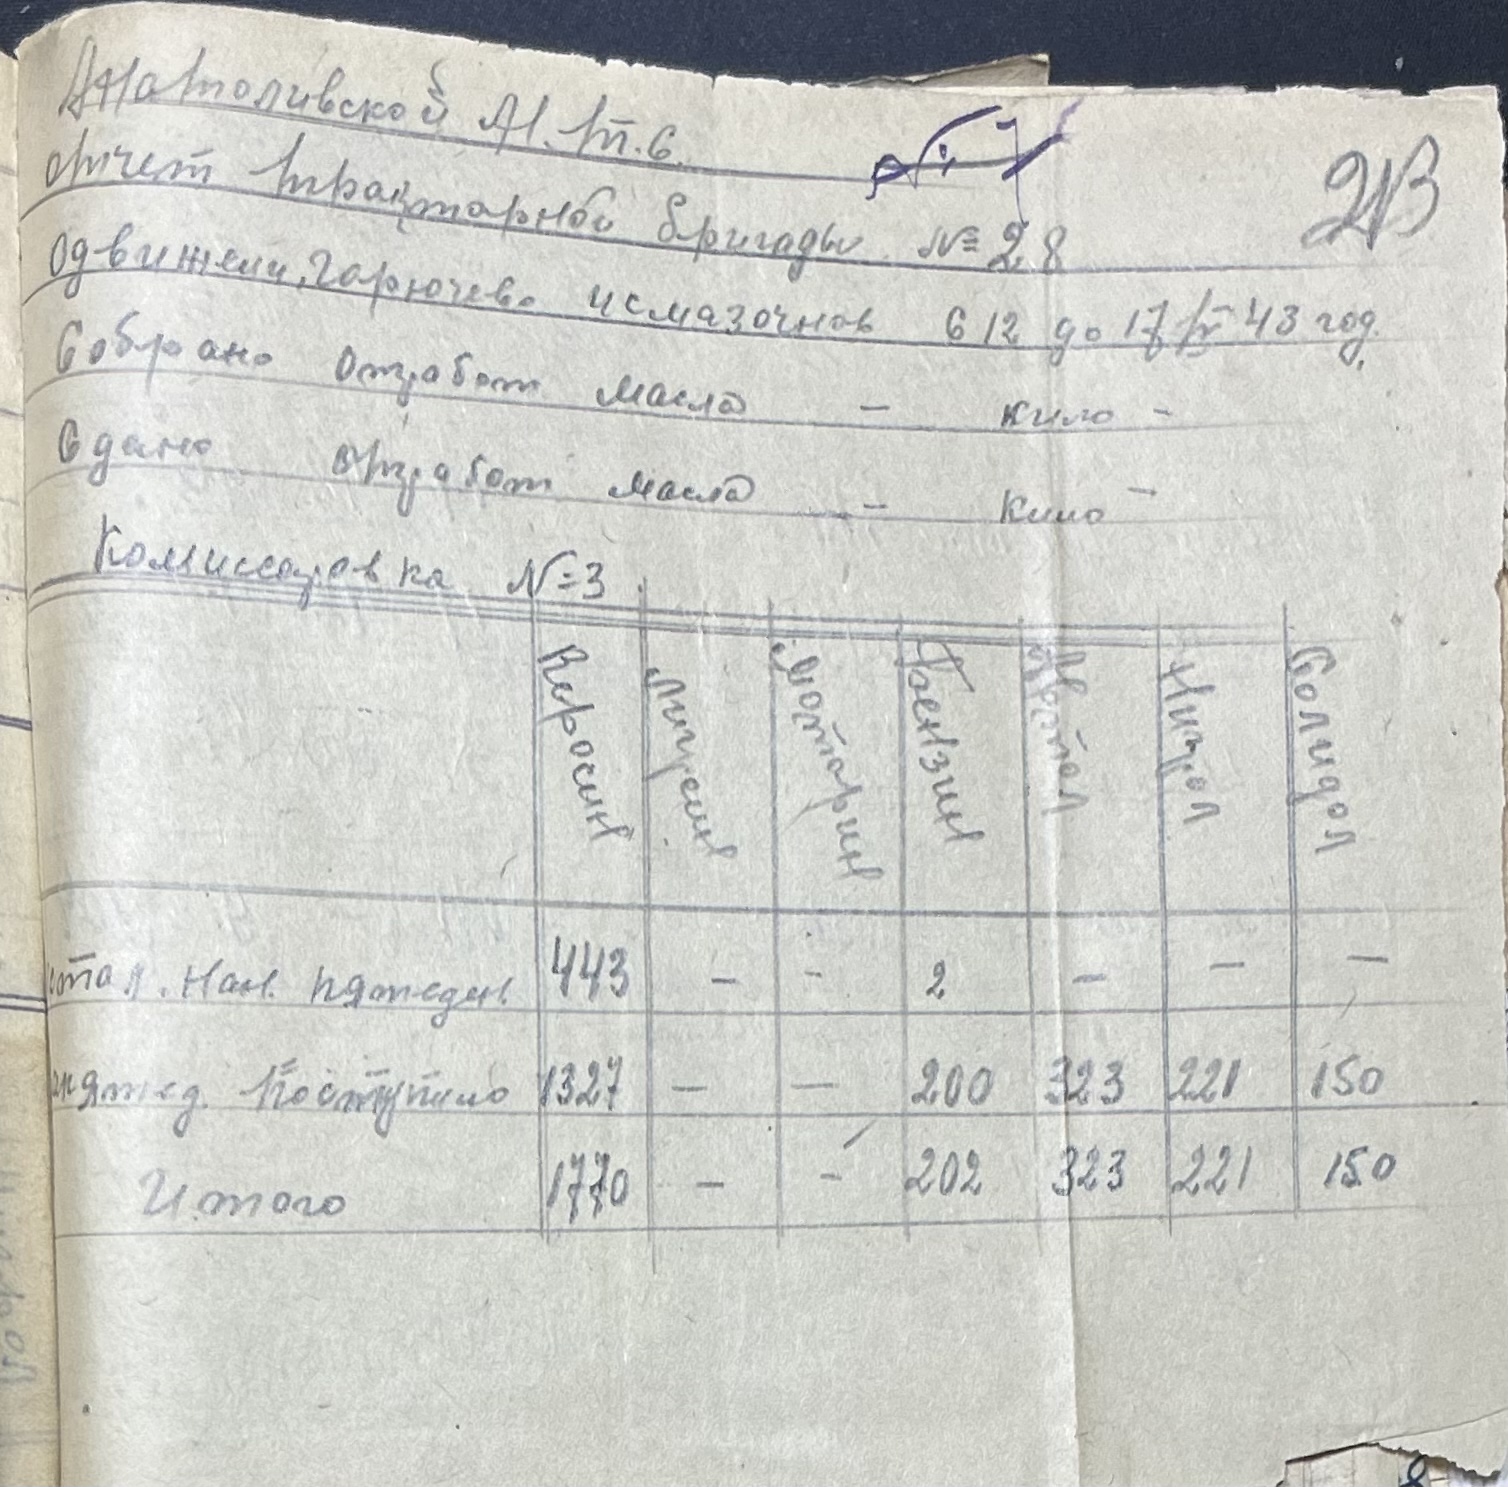 Анатоливской М.т.с.
отчет тракторной бригады №28
одвижени, горючево исмазочнов с 12 до 17 43 год.
Собрано отработ масла — кило —
Сдано отработ масла — кило —
Комиссаровка №3
Керосин Лигроин Моторин Бензин Автол Нигрол Солидол
стал. нач. пятеден. 443 — - 2 — — —
пятед. Поступило 1327 — — 200 323 221 150
Итого 1770 — - 202 323 221 150